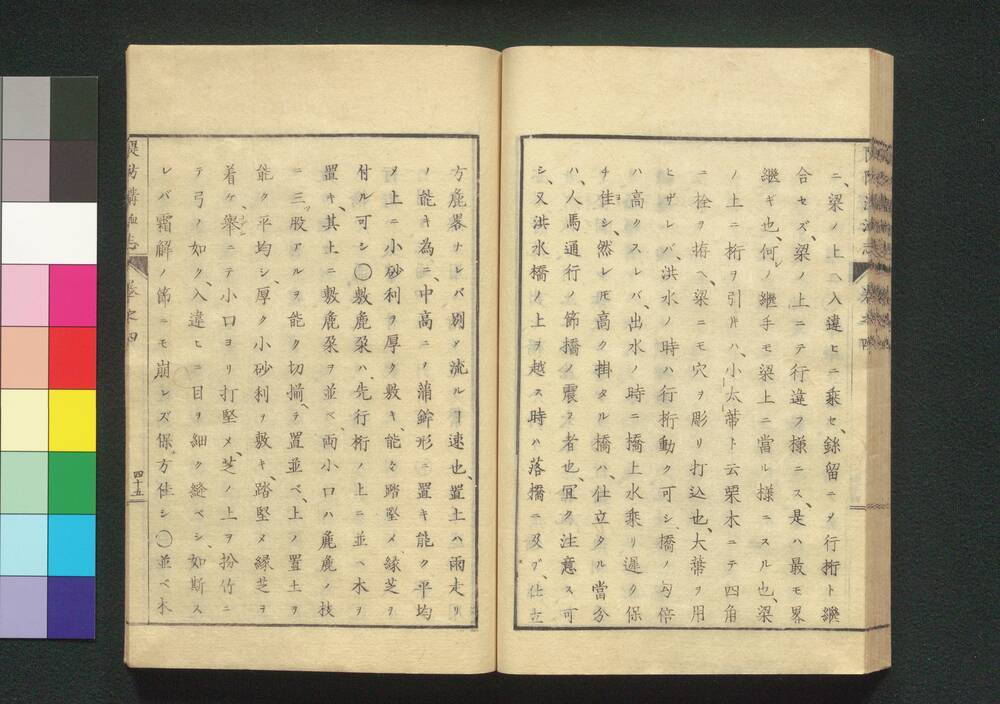 ニ、梁ノ上ヘ入違ヒニ乘セ、鎹留ニシテ行桁ト繼
合セズ、梁ノ上ニテ行違フ樣ニス、是ハ最モ畧
繼ギ也、何ノ繼手モ梁上ニ當ル樣ニスル也、梁
ノ上ニ桁ヲ引片ハ、小太蔕ト云栗木ニテ四角
ニ拴ヲ拵ヘ、梁ニモ穴ヲ彫リ打込也、大蔕ヲ用
ヒザレバ、洪水ノ時ハ行桁動ク可シ、橋ノ勾倍
ハ高クスレバ、出水ノ時ニ橋上水乘リ遲ク保
チ佳シ、然レ𪜈高ク掛タル橋ハ、仕立タル當分
ハ、人馬通行ノ節橋ノ震フ者也、冝ク注意ス可
シ、又洪水橋ノ上ヲ越ス時ハ落橋ニ及ブ、仕立
方麁畧ナレバ別〆流ルヿ速也、置土ハ雨走リ
ノ能キ為ニ、中高ニ〆蒲鉾形ニ置キ能ク平均
〆上ニ小砂利ヲ厚ク敷キ、能々踏堅メ縁芝ヲ
付ル可シ〇敷麁朶ハ、先行桁ノ上ニ並ヘ木ヲ
置キ、其上ニ敷麁朶ヲ並ベ、兩小口ハ麁麁ノ枝
ニ三股アルヲ能ク切揃ヘテ置並ベ、上ノ置土ヲ
能ク平均シ、厚ク小砂利ヲ敷キ、踏堅メ縁芝ヲ
着ケ、擧ニテ小口ヨリ打堅メ、芝ノ上ヲ扮竹ニ
テ弓ノ如ク、入違ヒニ目ヲ細ク縫ベシ、如斯ス
レバ霜解ノ節ニモ崩レズ保方佳シ〇並ベ木
堤防溝洫志 卷之四
四十五